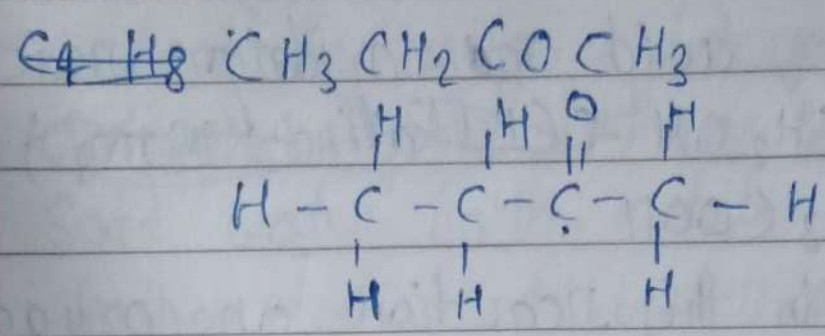 C4 H8 CH3 CH2 CO CH3
H H O H
H - C - C - C - C - H
H H H